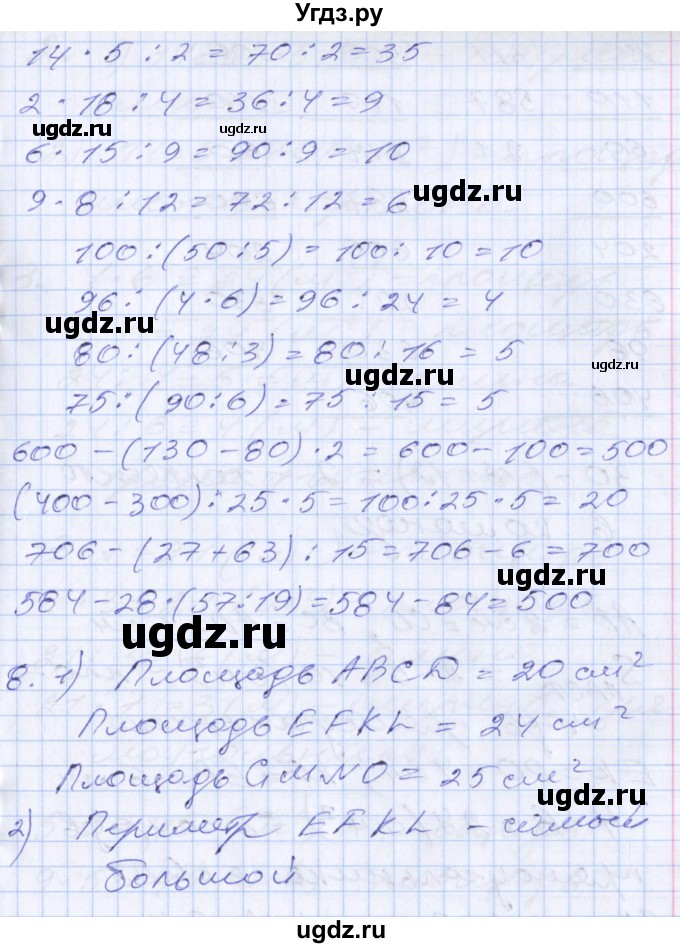 Угдз.ру
14 · 5 : 2 = 70 : 2 = 35
2 · 18 : 4 = 36 : 4 = 9
ugdz.ru ugdz.ru
6 · 15 : 9 = 90 : 9 = 10
9 · 8 : 12 = 72 : 12 = 6
ugdz.ru
100 : (50 : 5) = 100 : 10 = 10
96 : (4 · 6) = 96 : 24 = 4
ugdz.ru
80 : (48 : 3) = 80 : 16 = 5
ugdz.ru ugdz.ru
75 : (90 : 6) = 75 : 15 = 5
600 - (130 - 80) · 2 = 600 - 100 = 500
(400 - 300) : 25 · 5 = 100 : 25 · 5 = 20
706 - (27 + 63) : 15 = 706 - 6 = 700
ugdz.ru
584 - 28 · (57 : 19) = 584 - 84 = 500
ugdz.ru
8. 1) Площадь ABCD = 20 см²
Площадь EFKL = 24 см²
Площадь GMNO = 25 см²
ugdz.ru
2) Периметр EFKL - самый
большой
ugdz.ru